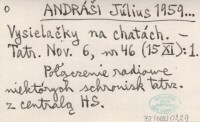 ANDRÁŠI Július 1959...
Vysielačky na chatách. —
Tatr. Nov. 6, nr 46 (15 XI): 1.
Połączenie radiowe
niektórych schronisk tatrz.
z centralą HS.